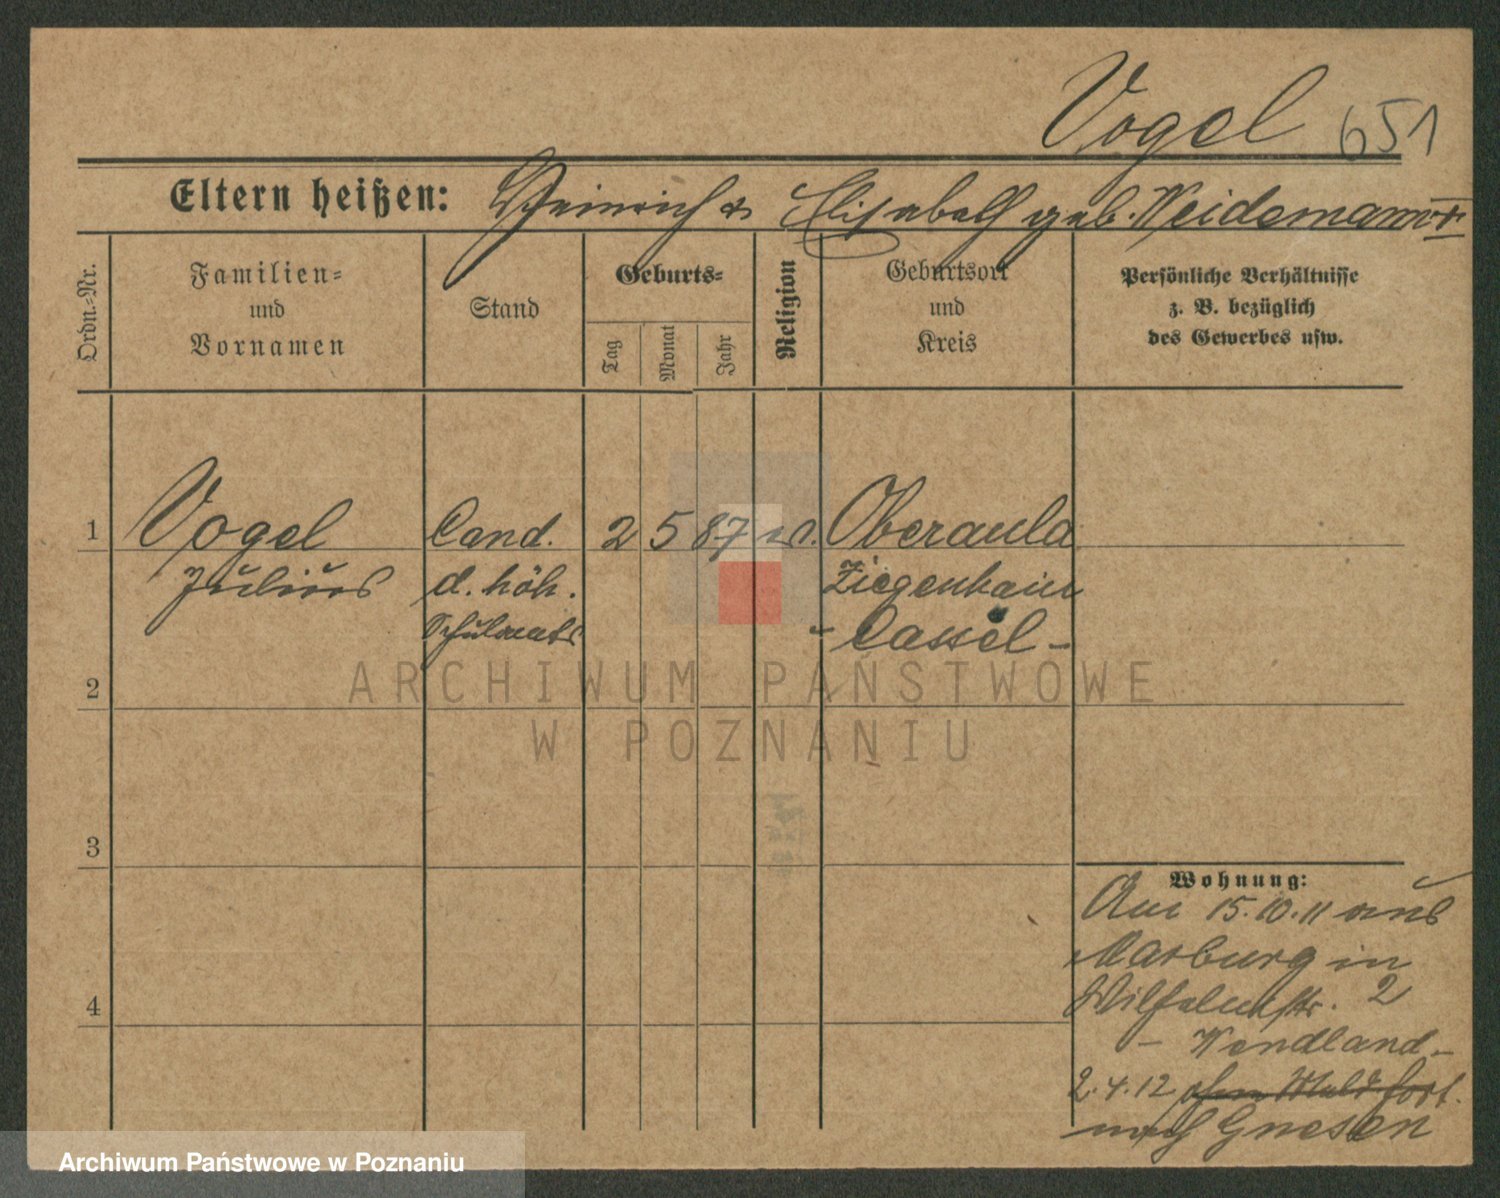 Vogel 651
Eltern heißen: Heinrich u Elisabeth geb. Weidemann
Ordn.-Nr.
Familien-
und
Vornamen
Stand
Geburts-
Tag
Monat
Jahr
Religion
Geburtsort
und
Kreis
Persönliche Verhältnisse
z. B. bezüglich
des Gewerbes usw.
1 Vogel Cand. 2 5 87 ev. Oberaula
Julius d. höh. Ziegenhain
Schulamts - Cassel -
2
3
4
Wohnung:
Am 15.10.11 aus
Marburg in
Wilhelmstr. 2
- Wendland -
2.4.12 ohne Meld fort.
nach Gnesen
ARCHIWUM PAŃSTWOWE
W POZNANIU
Archiwum Państwowe w Poznaniu